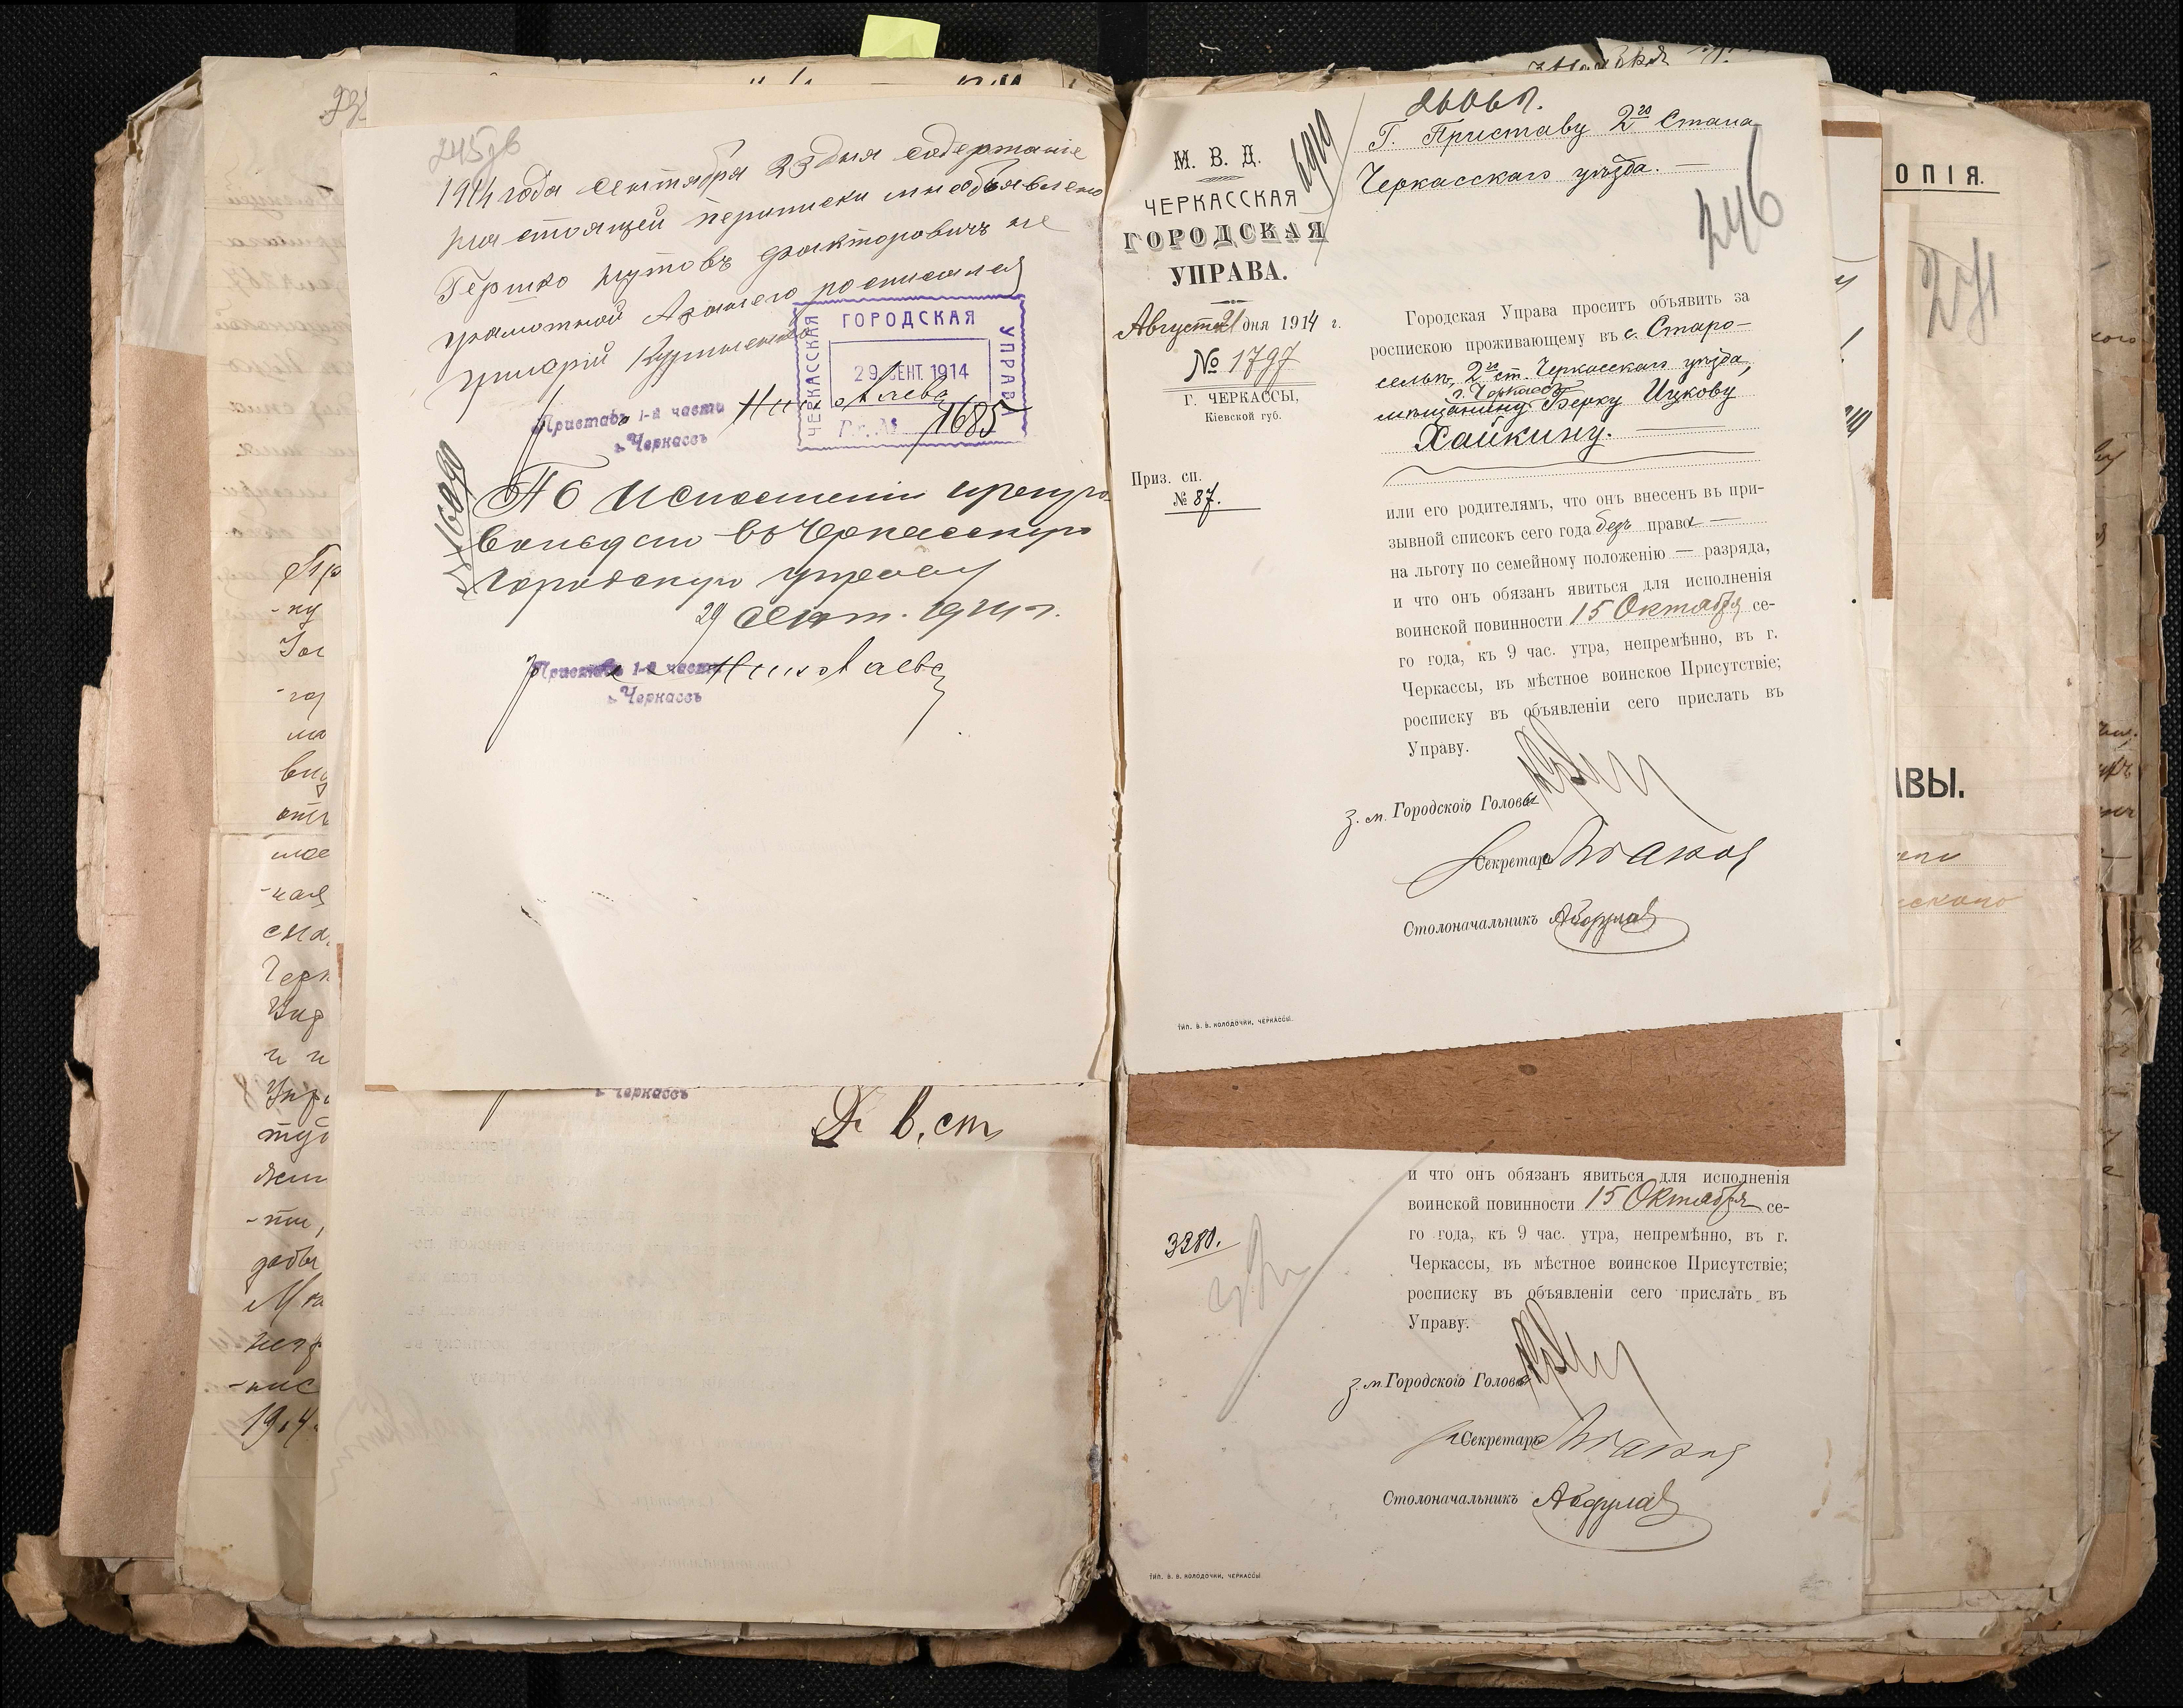 245об
1914 года Сентября 23 дня содержаніе
настоящей переписки мнѣ объявлено
Гершко Нутовъ Факторовичъ не
грамотной А за него росписался
Григорій
ЧЕРКАССКАЯ
ГОРОДСКАЯ
УПРАВА
29 СЕНТ. 1914
Вх. №
1685
Приставъ 1-й части
г. Черкассъ
Николаевъ
По исполненіи препро
вождаю въ Черкасскую
Городскую управу
29 Сент. 1914 г.
Приставъ 1-й части
г. Черкассъ
Николаевъ
г. Черкассъ
в. ст
М. В. Д.
ЧЕРКАССКАЯ
ГОРОДСКАЯ
УПРАВА.
Августа 21 дня 1914 г.
№ 1797
Г. ЧЕРКАССЫ,
Кіевской губ.
Приз. сп.
№ 87.
Г. Приставу 2го Стана
Черкасскаго уѣзда. —
246
Городская Управа проситъ объявить за
роспискою проживающему въ с. Старо-
сельи, 2го ст. Черкасскаго уѣзда,
г. Черкассъ
мѣщанину Берку Ицкову
Хайкину. —
или его родителямъ, что онъ внесенъ въ при-
зывной списокъ сего года безъ права —
на льготу по семейному положенію — разряда,
и что онъ обязанъ явиться для исполненія
воинской повинности 15 Октября се-
го года, къ 9 час. утра, непремѣнно, въ г.
Черкассы, въ мѣстное воинское Присутствіе;
росписку въ объявленіи сего прислать въ
Управу.
З. м. Городского Головы
Секретарь
Столоначальникъ
ТИП. В. В. КОЛОДОЧКИ, ЧЕРКАССЫ.
и что онъ обязанъ явиться для исполненія
воинской повинности 15 Октября се-
го года, къ 9 час. утра, непремѣнно, въ г.
Черкассы, въ мѣстное воинское Присутствіе;
росписку въ объявленіи сего прислать въ
Управу.
3280.
З. м. Городского Головы
Секретарь
Столоначальникъ
ТИП. В. В. КОЛОДОЧКИ, ЧЕРКАССЫ
ОПІЯ.
271
АВЫ.